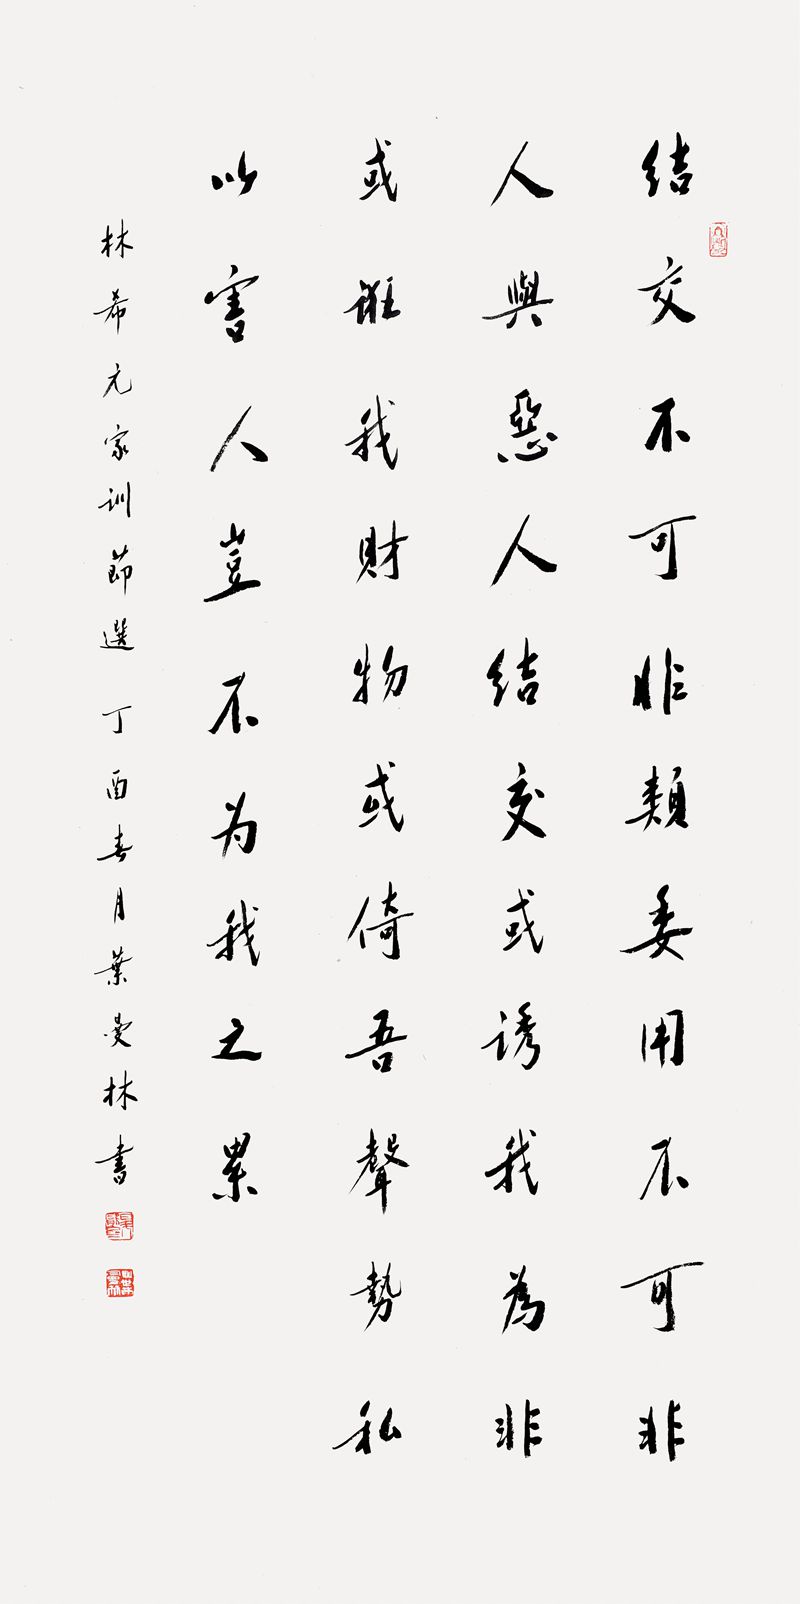 結交不可非類委用不可非
人與惡人结交或诱我為非
或誰我財物或倚吾聲勢私
以害人豈不为我之累
林希元家训節選 丁酉春月葉曼林書